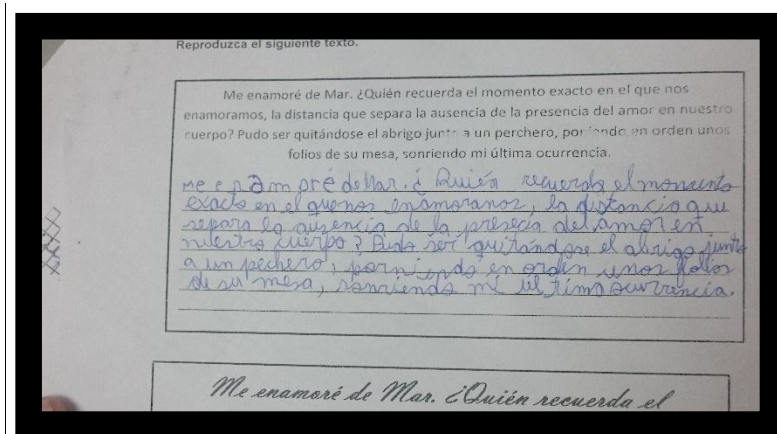 Reproduzca el siguiente texto.
Me enamoré de Mar. ¿Quién recuerda el momento exacto en el que nos
enamoramos, la distancia que separa la ausencia de la presencia del amor en nuestro
cuerpo? Pudo ser quitándose el abrigo junto a un perchero, poniendo en orden unos
folios de su mesa, sonriendo mi última ocurrencia.
Me enamoré de Mar. ¿Quién recuerda el momento
exacto en el que nos enamoranos, la distancia que
separa la ausencia de la presecia del amor en
nuestro cuerpo? Pudo ser quitándose el abrigo junto
a un pechero, porniendo en orden unos folios
de su mesa, sonriendo mi última ocurrencia.
Me enamoré de Mar. ¿Quién recuerda el